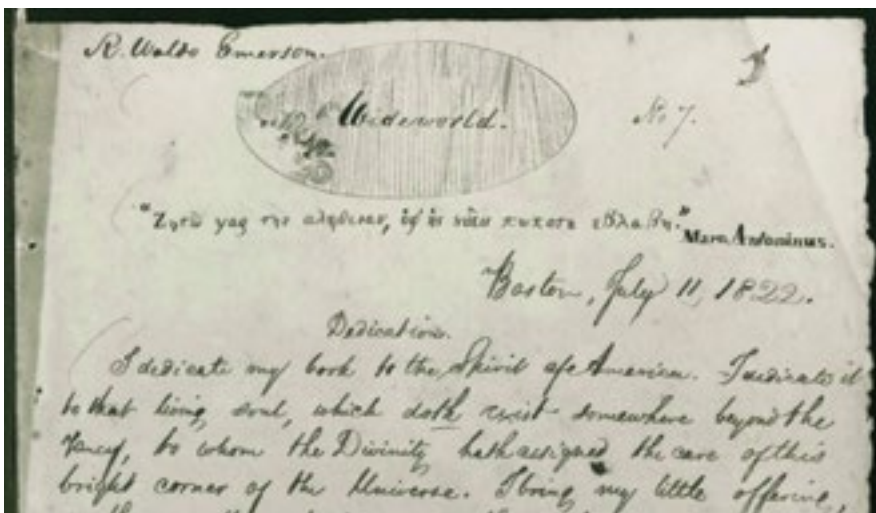 R. Waldo Emerson.
Wideworld.
No 7.
"Ζητῶ γαρ την αληθειαν, ὑφ ἡς ουδεις πωποτε εβλαβη."
Marc. Antoninus.
Boston, July 11, 1822.
Dedication.
I dedicate my book to the Spirit of America. I dedicate it
to that living soul, which doth exist somewhere beyond the
Fancy, to whom the Divinity hath assigned the care of this
bright corner of the Universe. I bring my little offering,